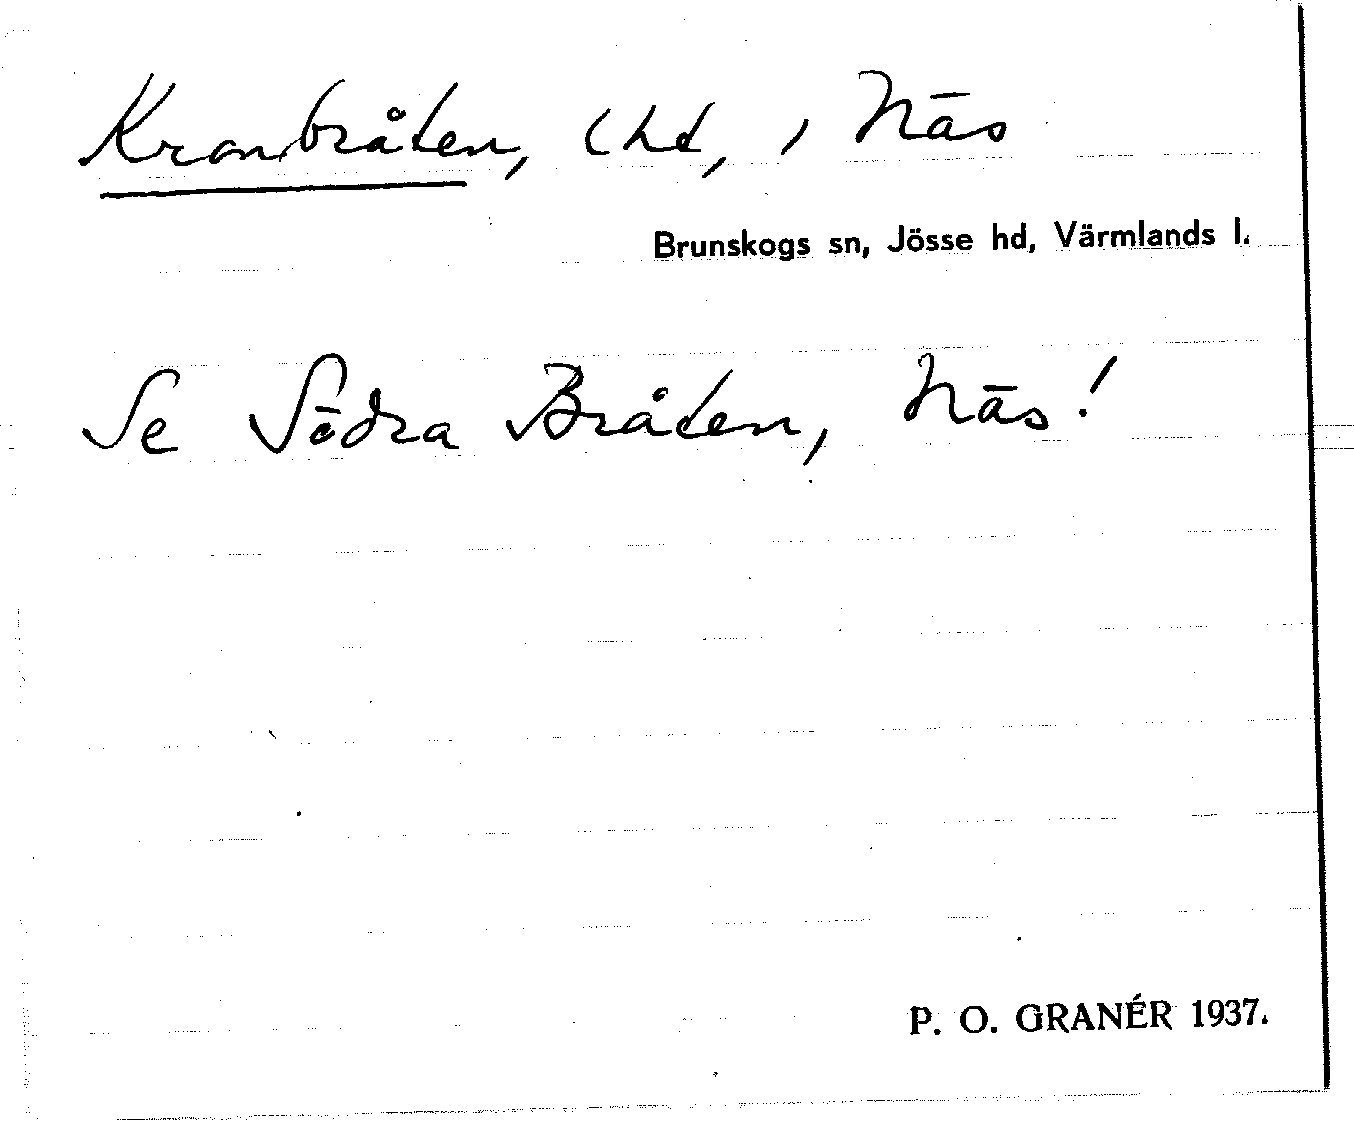 Kronbråten, lht, i Näs
Brunskogs sn, Jösse hd, Värmlands l.
Se Södra Bråten, Näs!
P. O. GRANÉR 1937.